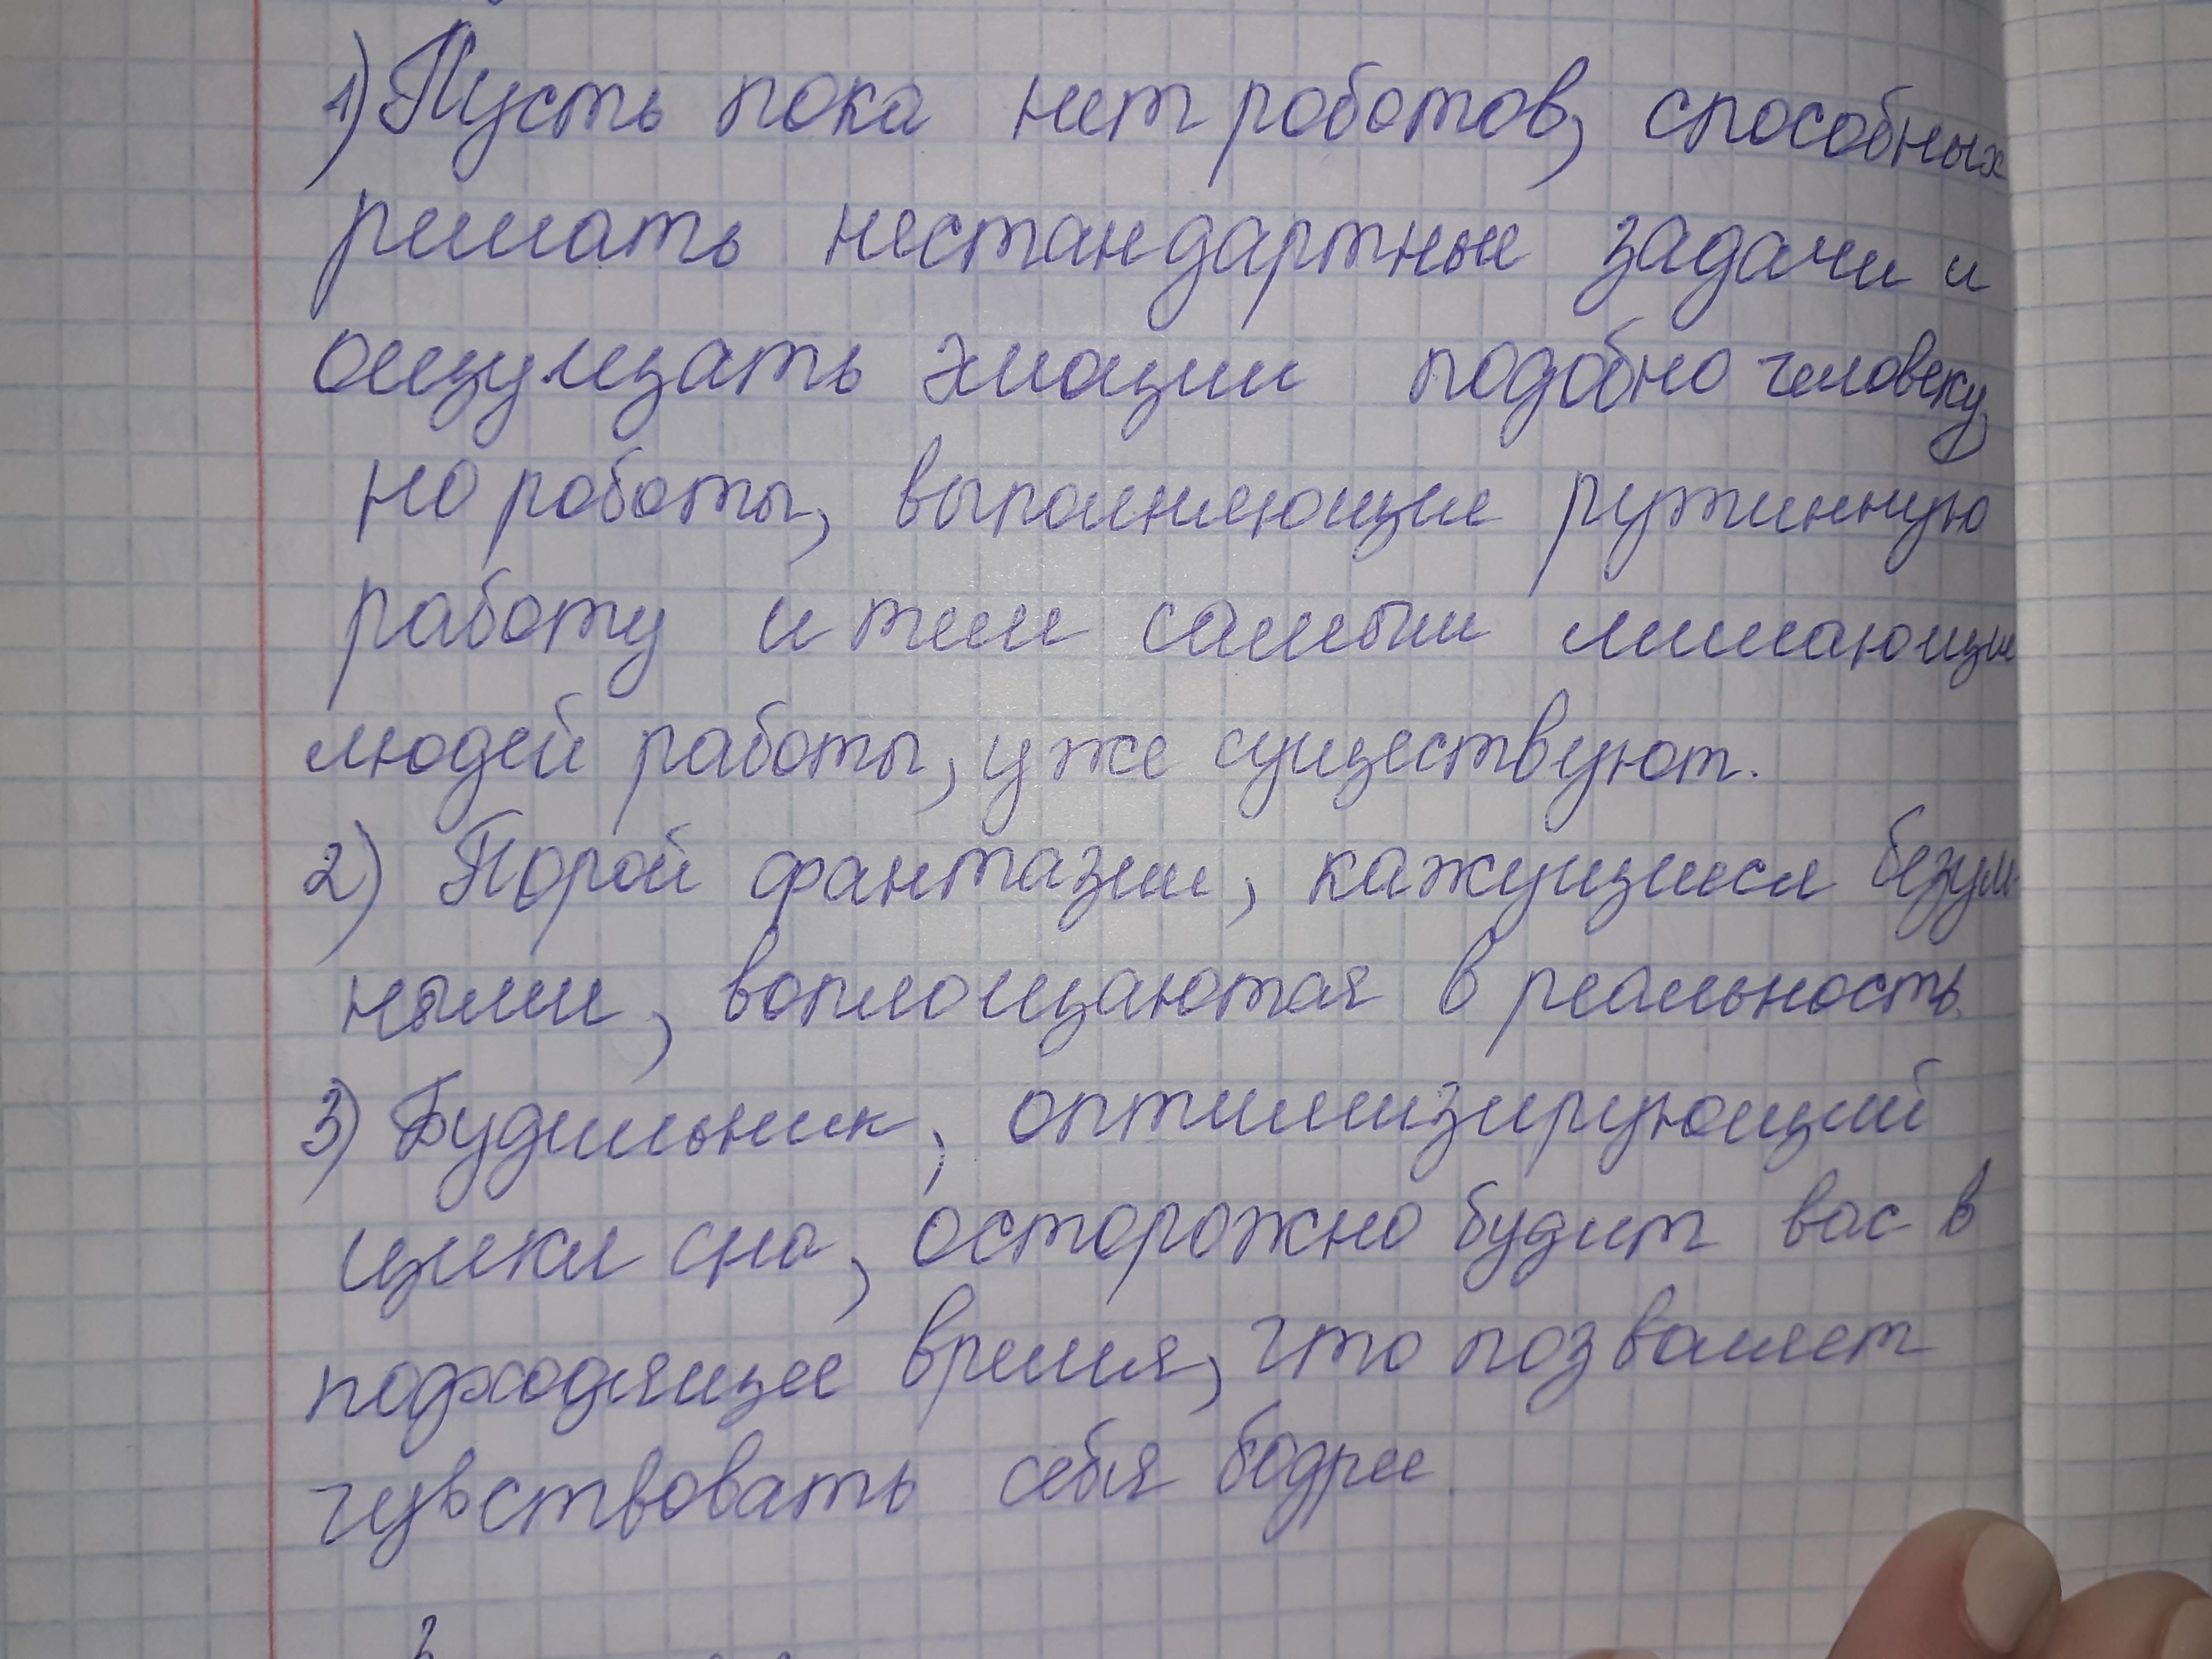 1) Пусть пока нет роботов, способных
решать нестандартные задачи и
ощущать эмоции подобно человеку,
но роботы, выполняющие рутинную
работу и тем самым лишающие
людей работы, уже существуют.
2) Порой фантазии, кажущиеся безум-
ными, воплощаются в реальность.
3) Будильник, оптимизирующий
циклы сна, осторожно будит вас в
подходящее время, что позволяет
чувствовать себя бодрее.